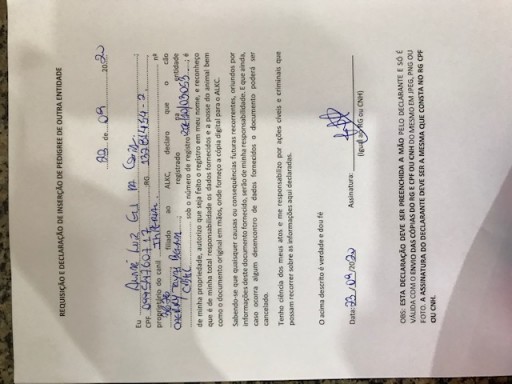 REQUISIÇÃO E DECLARAÇÃO DE INSERÇÃO DE PEDIGREE DE OUTRA ENTIDADE
23 de 09 2020
Eu André Luiz
CPF RG
proprietário do canil nº
filiado ao ALKC, declaro que o cão
registrado pa entidade
sob o número de registro é
de minha propriedade, autorizo que seja feito o registro em meu nome, e reconheço
que é de minha total responsabilidade os dados fornecidos e a posse do animal bem
como o documento original em mãos, onde forneço a cópia digital para o ALKC.
Sabendo-se que quaisquer causas ou consequências futuras recorrentes, oriundos por
informações deste documento fornecido, serão de minha responsabilidade. E que ainda,
caso ocorra algum desencontro de dados fornecidos o documento poderá ser
cancelado.
Tenho ciência dos meus atos e me responsabilizo por ações cíveis e criminais que
possam recorrer sobre as informações aqui declaradas.
O acima descrito é verdade e dou fé
Data: 23/09/2020 Assinatura:
(igual ao RG ou CNH)
OBS: ESTA DECLARAÇÃO DEVE SER PREENCHIDA A MÃO PELO DECLARANTE E SÓ É
VÁLIDA COM O ENVIO DAS CÓPIAS DO RG E CPF OU CNH DO MESMO EM JPEG, PNG OU
FOTO. A ASSINATURA DO DECLARANTE DEVE SER A MESMA QUE CONSTA NO RG CPF
OU CNH.